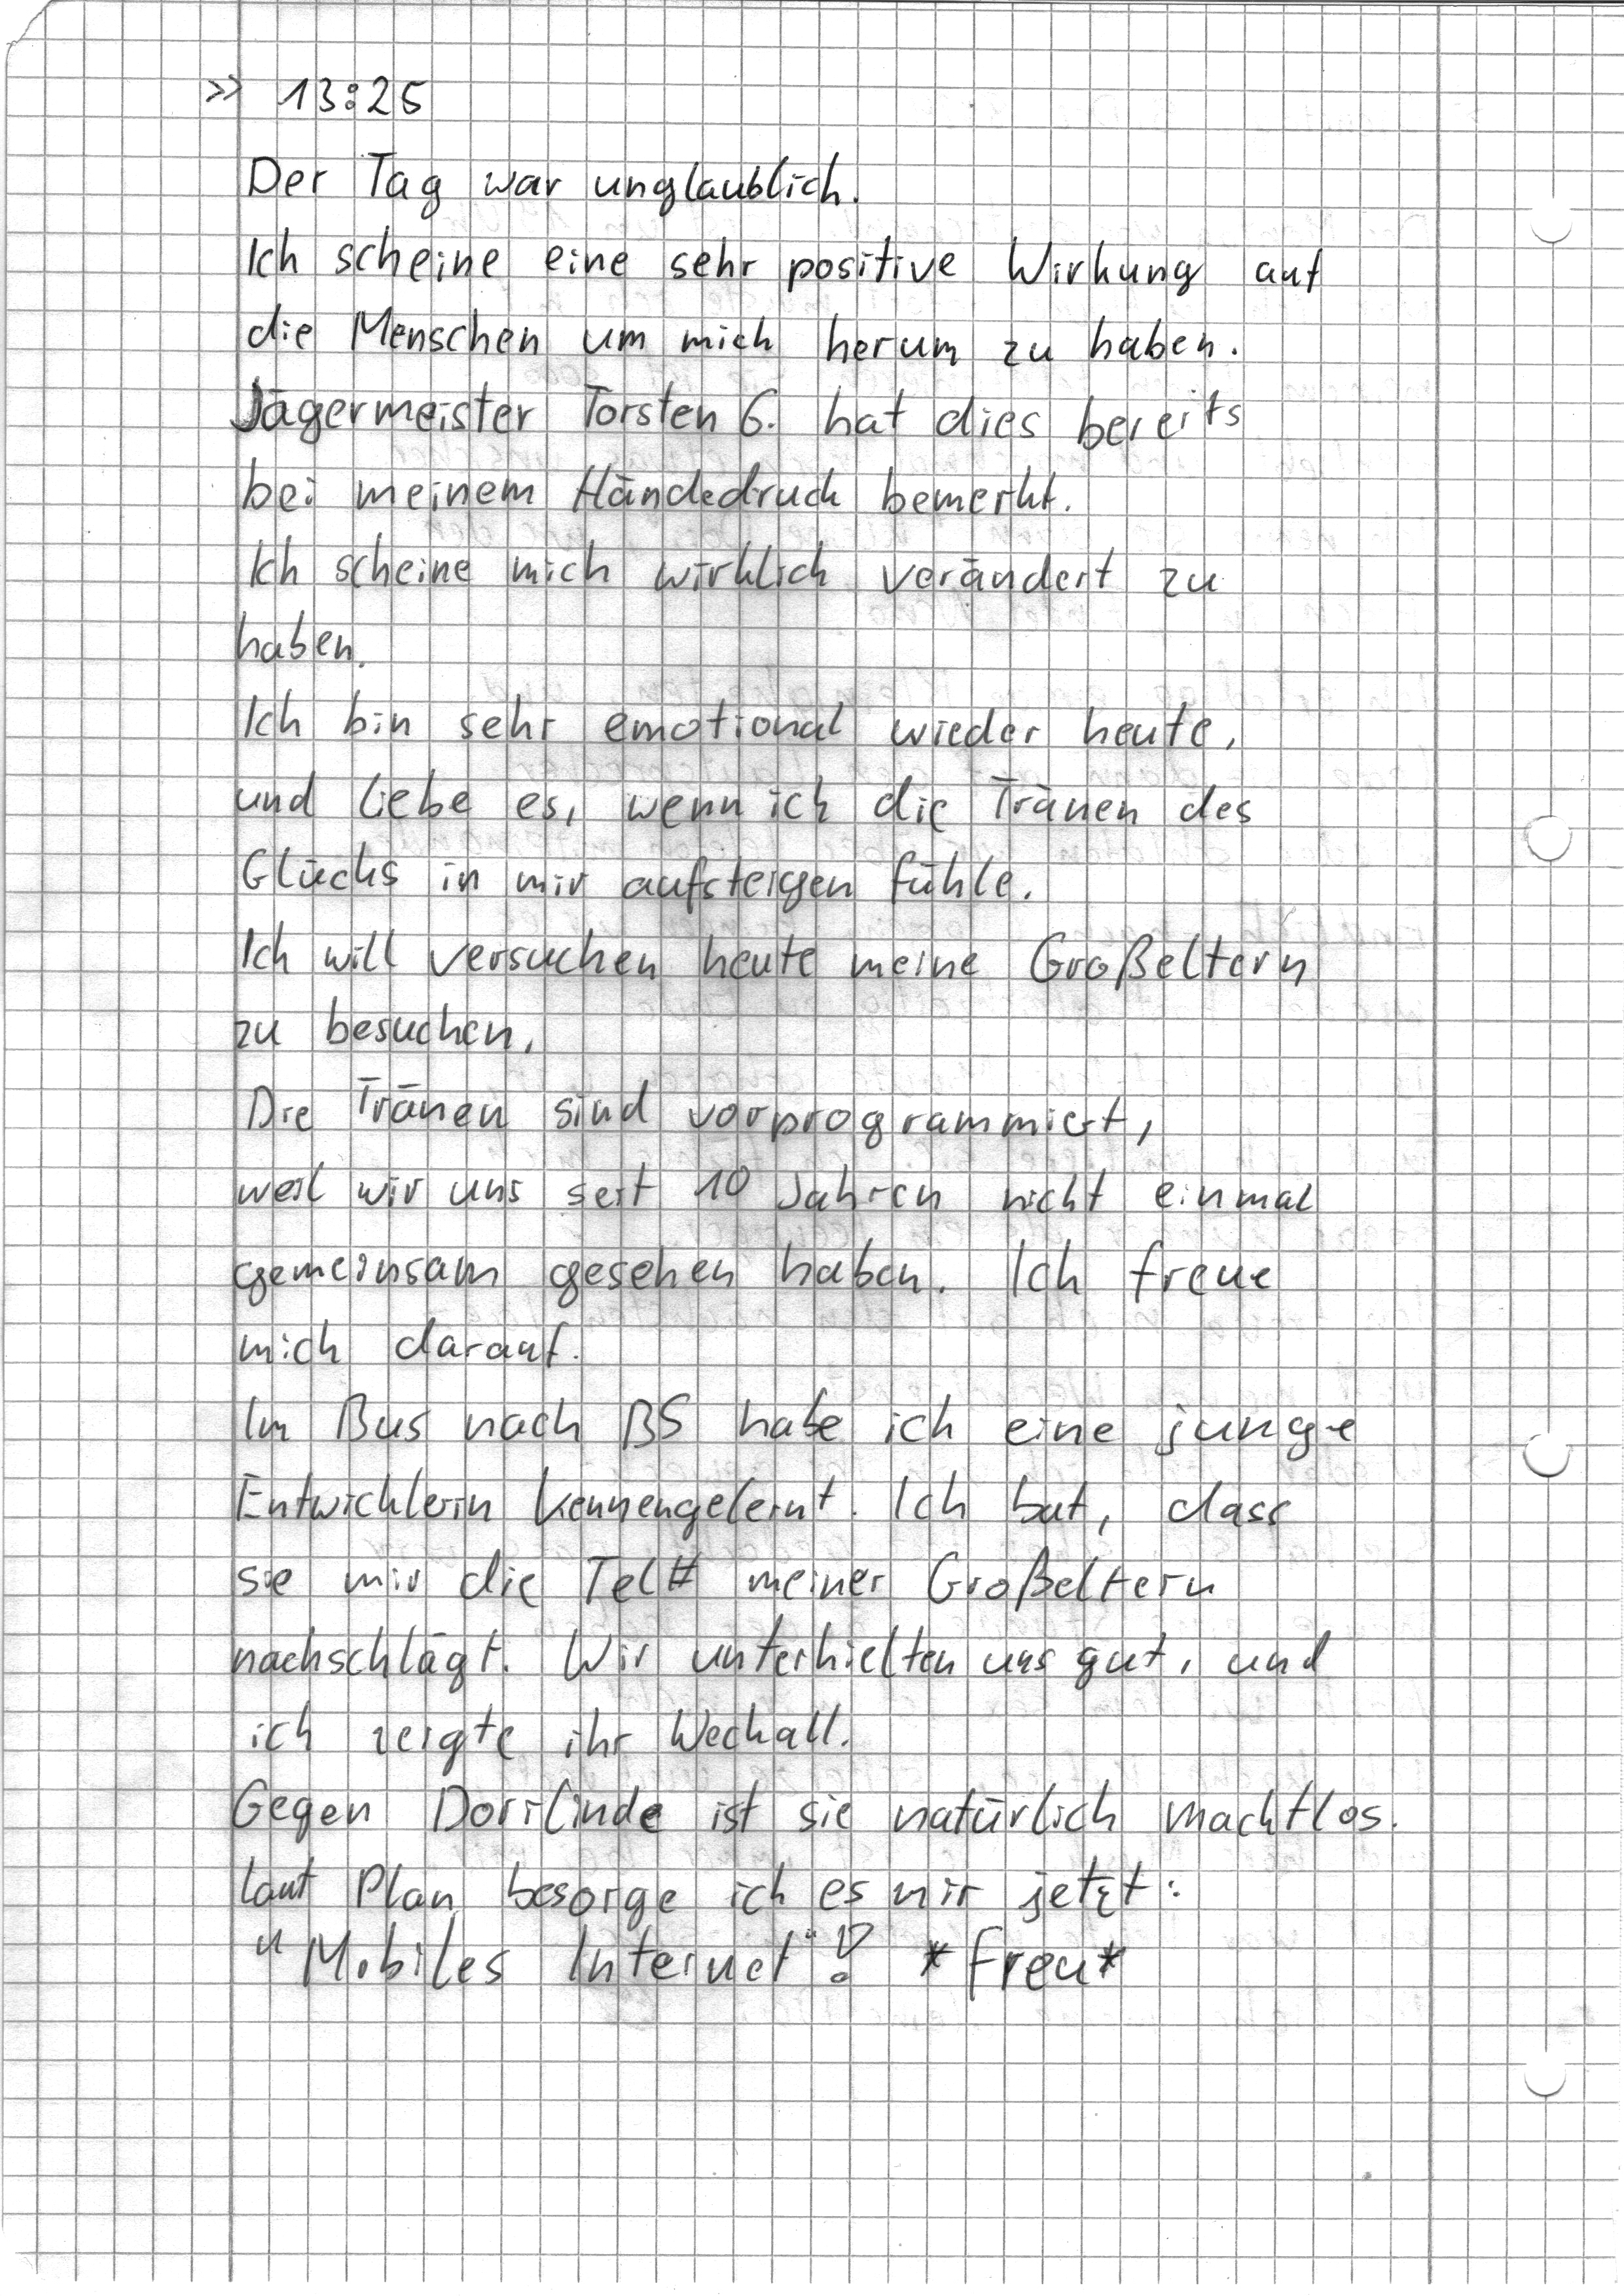 >> 13:25
Der Tag war unglaublich.
Ich scheine eine sehr positive Wirkung auf
die Menschen um mich herum zu haben.
Jägermeister Torsten G. hat dies bereits
bei meinem Händedruck bemerkt.
Ich scheine mich wirklich verändert zu
haben.
Ich bin sehr emotional wieder heute,
und liebe es, wenn ich die Tränen des
Glücks in mir aufsteigen fühle.
Ich will versuchen heute meine Großeltern
zu besuchen,
Die Tränen sind vorprogrammiert,
weil wir uns seit 10 Jahren nicht einmal
gemeinsam gesehen haben. Ich freue
mich darauf.
Im Bus nach BS habe ich eine junge
Entwicklerin kennengelernt. Ich bat, dass
sie mir die Tel# meiner Großeltern
nachschlägt. Wir unterhielten uns gut, und
ich zeigte ihr Wechall.
Gegen Dorilinde ist sie natürlich machtlos.
laut Plan besorge ich es mir jetzt:
"Mobiles Internet"! *freu*